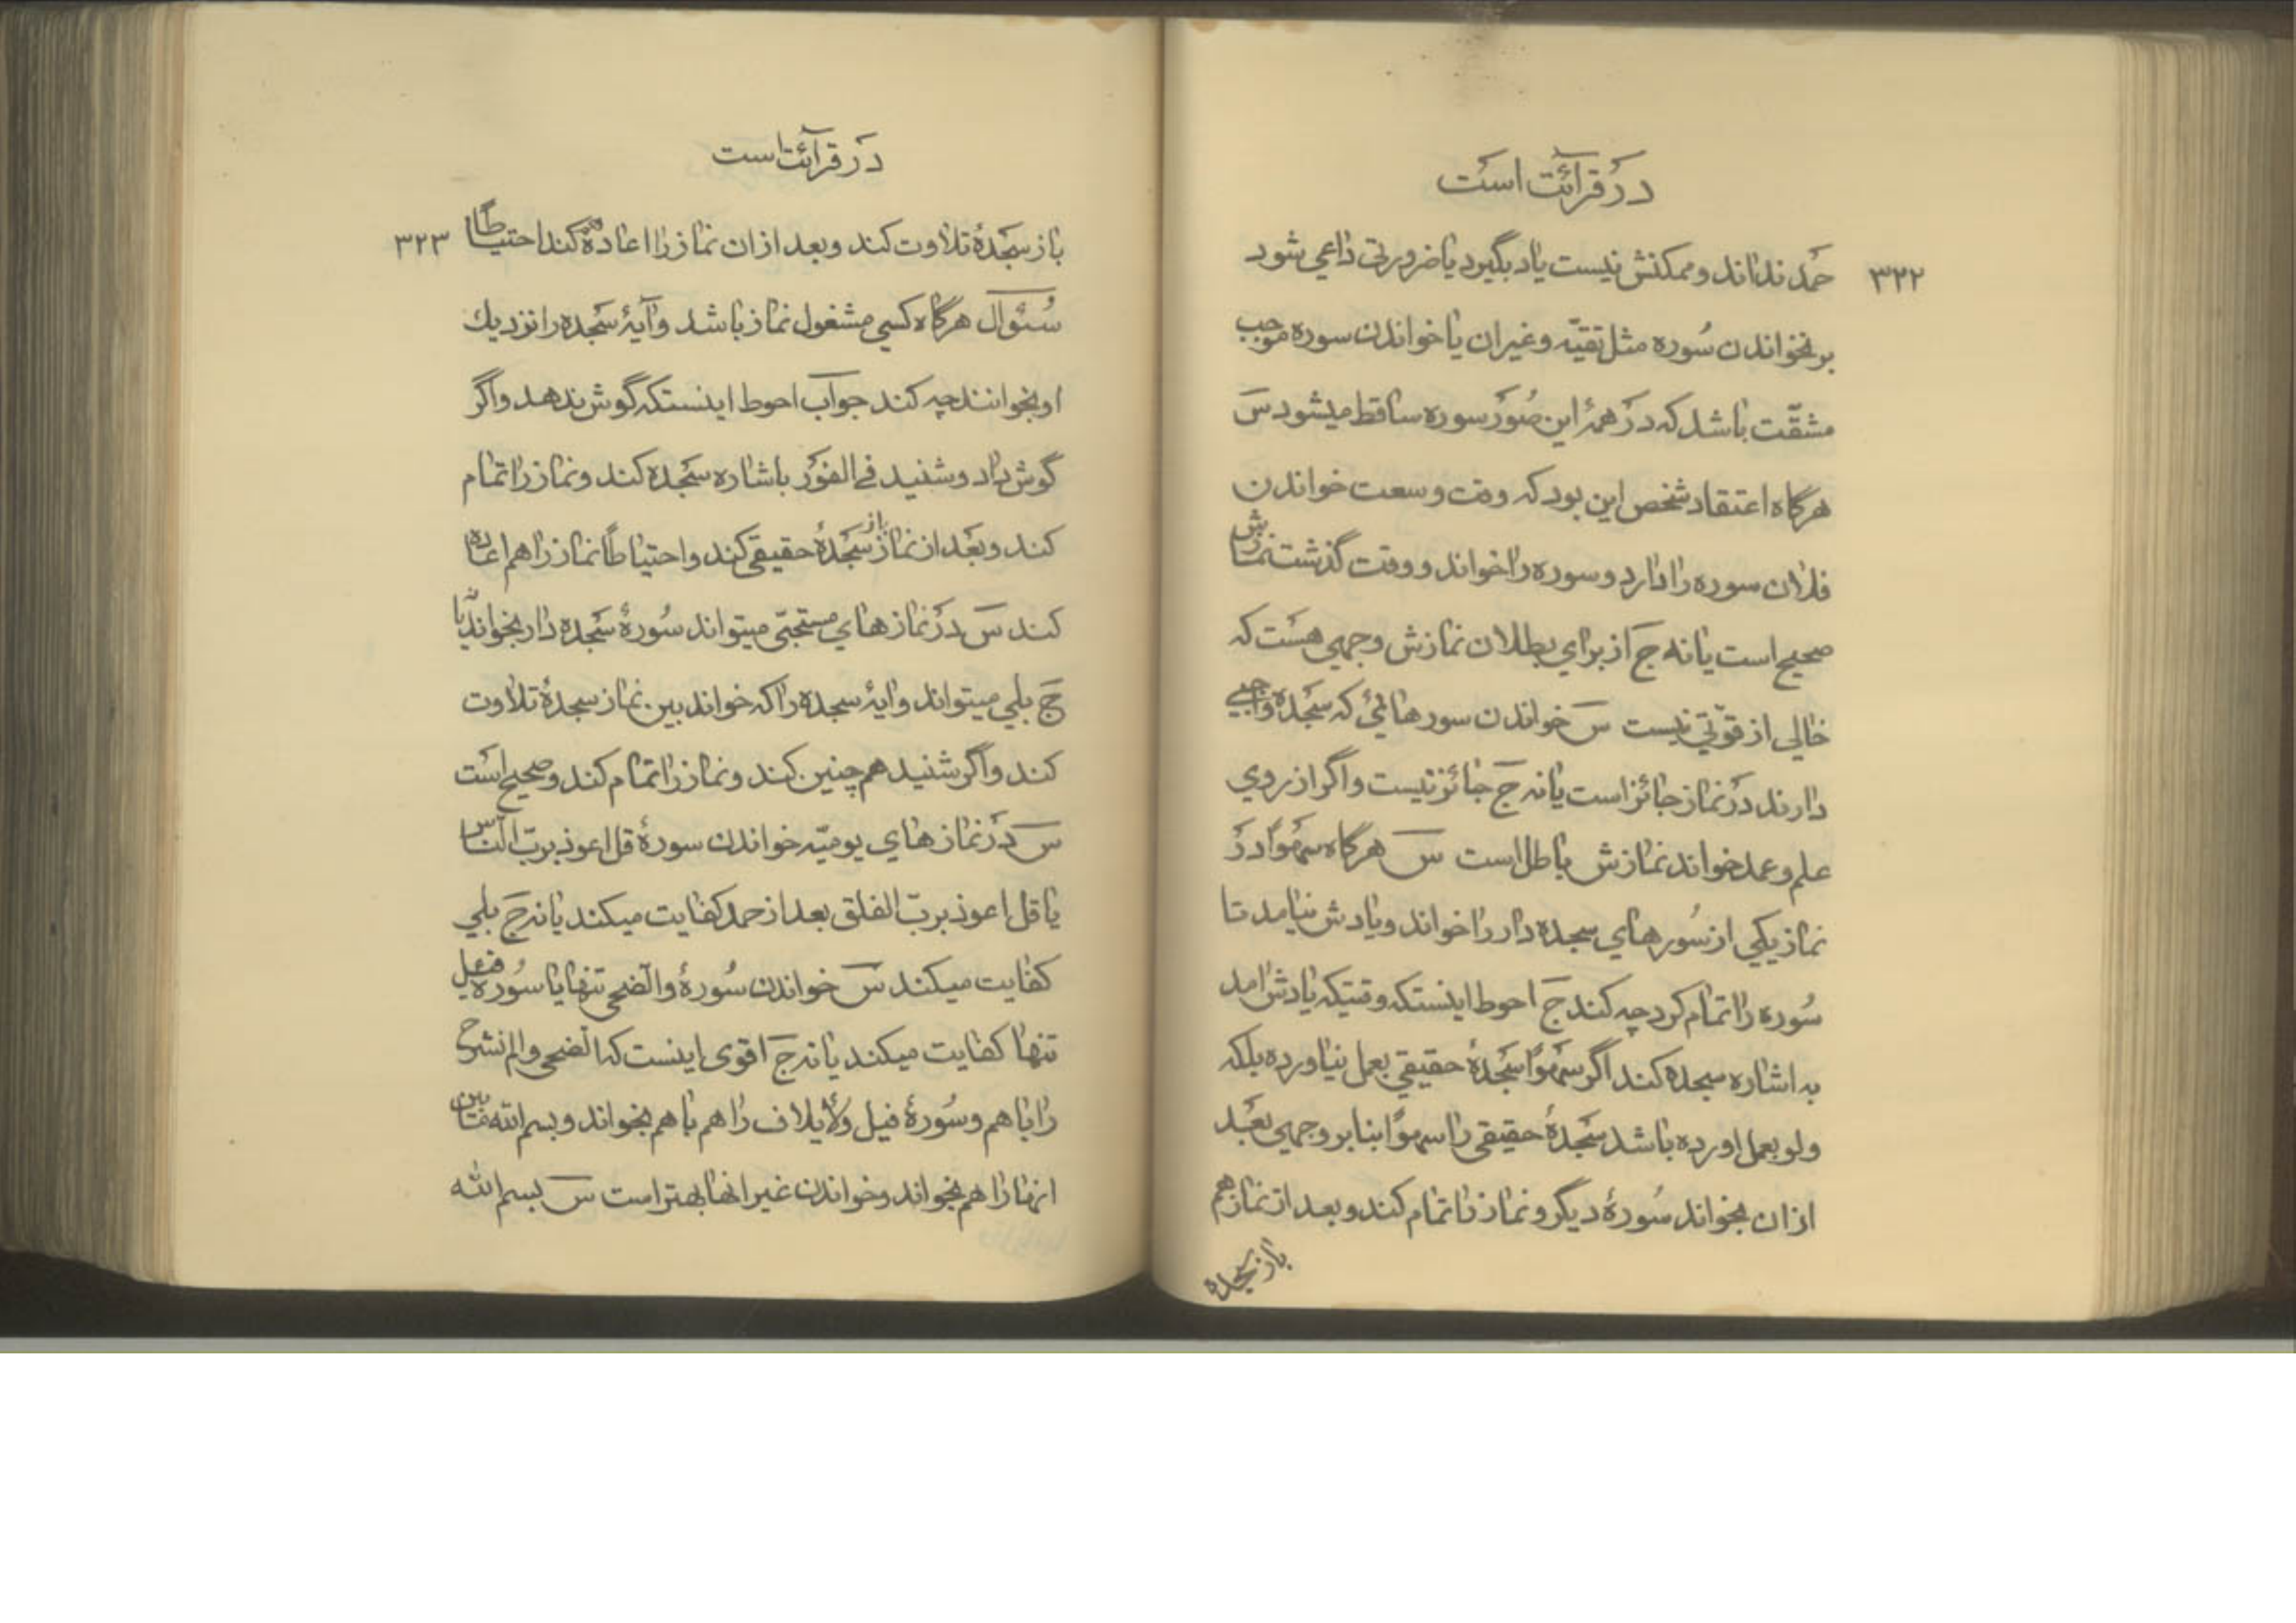 در قرائت است
۳۲۲
حمد نداند و ممکنش نیست یاد بگیرد یا ضرورتی داعی شود
بر نخواندن سُوره مثل تقیّه و غیر ان یا خواندن سوره موجب
مشقّت باشد که در همهٔ این صُوَر سوره ساقط میشود س
هرگاه اعتقاد شخص این بود که وقت وسعت خواندن
فلان سوره را دارد و سوره را خواند و وقت گذشت نمازش
صحیح است یا نه ج از برای بطلان نمازش وجهی هست که
خالی از قوّتی نیست س خواندن سورهائی که سجدهٔ واجبی
دارند در نماز جائز است یا نه ج جائز نیست و اگر از روی
علم و عمد خواند نمازش باطل است س هرگاه سهوًا در
نماز یکی از سُورهای سجده دار را خواند و یادش نیامد تا
سُوره را تمام کرد چه کند ج احوط اینستکه وقتیکه یادش امد
به اشاره سجده کند اگر سهوًا سجدهٔ حقیقی بعمل نیاورده بلکه
ولو بعمل اورده باشد سجدهٔ حقیقی را سهوًا بنا بر وجهی بعد
ازان بخواند سُورهٔ دیگر و نماز را تمام کند و بعد از نماز هم
باز سجده
در قرآئت است
۳۲۳
باز سجدهٔ تلاوت کند و بعد ازان نماز را اعاده کند احتیاطًا
سُئوال هرگاه کسی مشغول نماز باشد و آیهٔ سجده را نزدیك
او بخوانند چه کند جواب احوط اینستکه گوش ندهد و اگر
گوش داد و شنید فی الفور باشاره سجده کند و نماز را تمام
کند و بعد از نماز باز سجدهٔ حقیقی کند و احتیاطًا نماز را هم اعاده
کند س در نمازهای مستحبّی میتواند سُورهٔ سجده دار بخواند یا نه
ج بلی میتواند و ایهٔ سجده را که خواند بین نماز سجدهٔ تلاوت
کند و اگر شنید هم چنین کند و نماز را تمام کند و صحیح است
س در نمازهای یومیّه خواندن سورهٔ قل اعوذ بربّ النّاس
یا قل اعوذ بربّ الفلق بعد از حمد کفایت میکند یا نه ج بلی
کفایت میکند س خواندن سُورهٔ والضّحی تنها یا سُوره فیل
تنها کفایت میکند یا نه ج اقوی اینست که الضحی و الم نشرح
را با هم و سُورهٔ فیل و لأیلاف را هم با هم بخواند و بسم الله مابین
انها را هم بخواند و خواندن غیر انها بهتر است س بسم الله